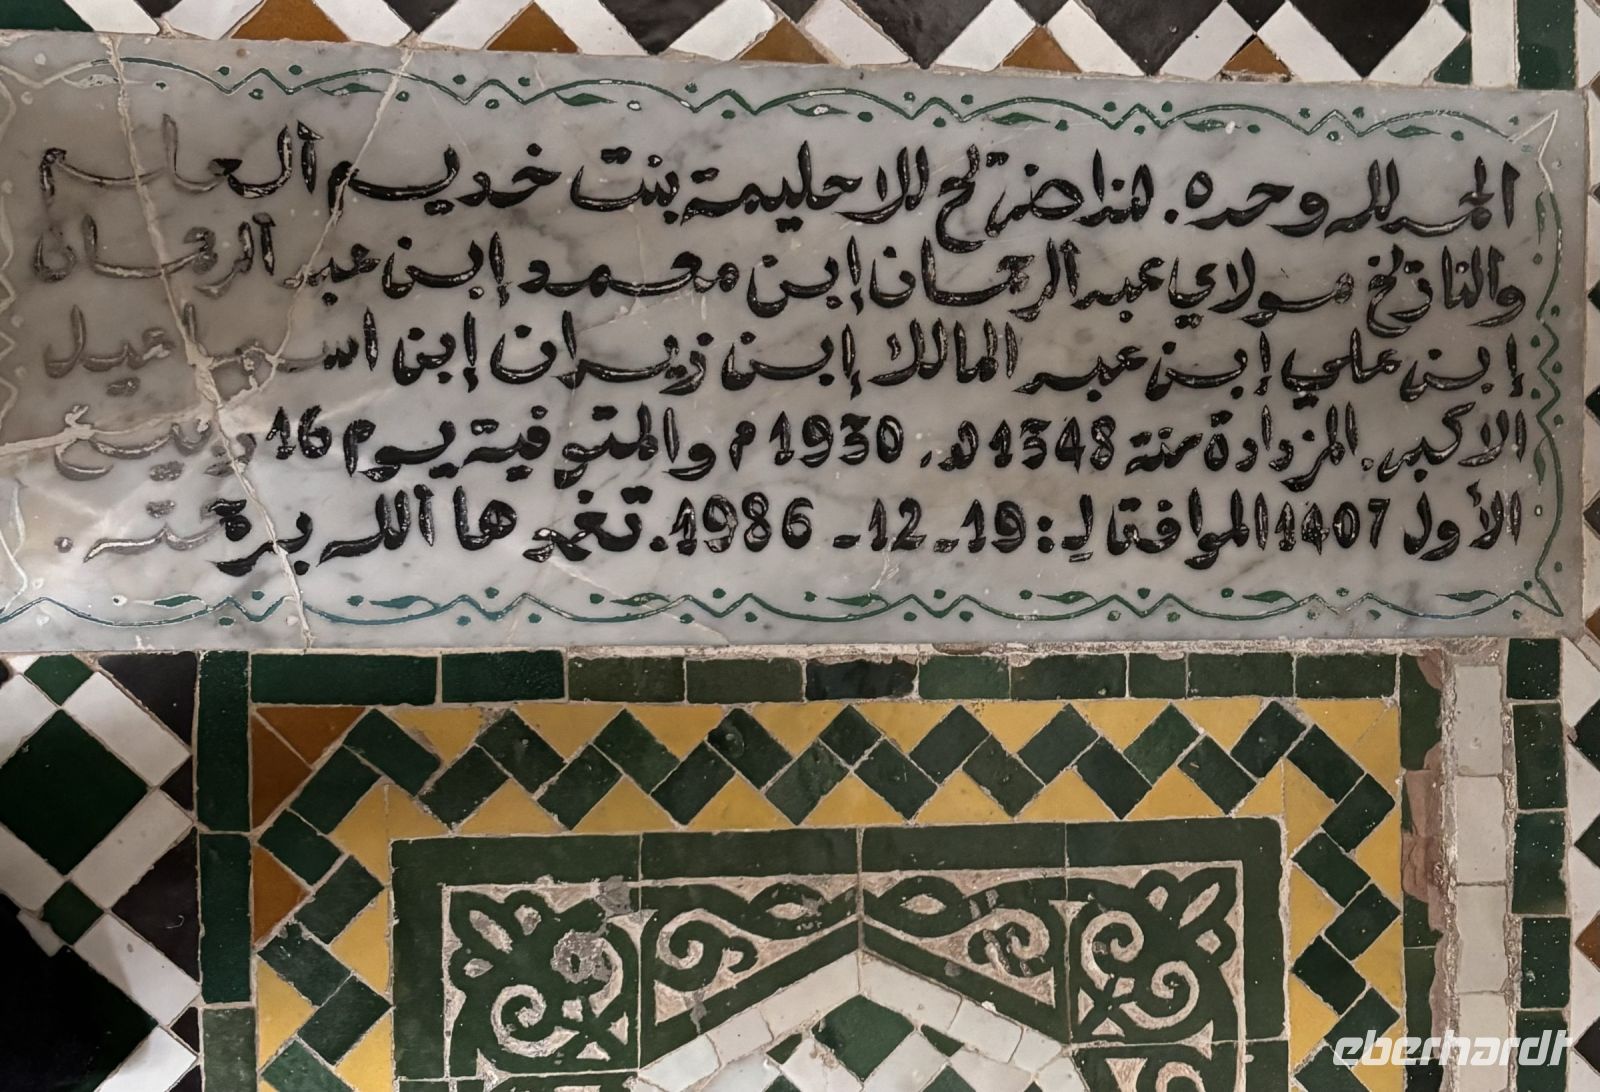 الحمد لله وحده. هذا ضريح للا حليمة بنت خديم العلم
والتاريخ مولاي عبد الرحمان إبن محمد إبن عبد الرحمان
إبن علي إبن عبد المالك إبن زيدان إبن اسماعيل
الاكبر. المزدادة سنة 1348 هـ. 1930 م والمتوفية يوم 16 ربيع
الأول 1407 الموافق لِ: 19 - 12 - 1986. تغمدها الله برحمته.
eberhardt